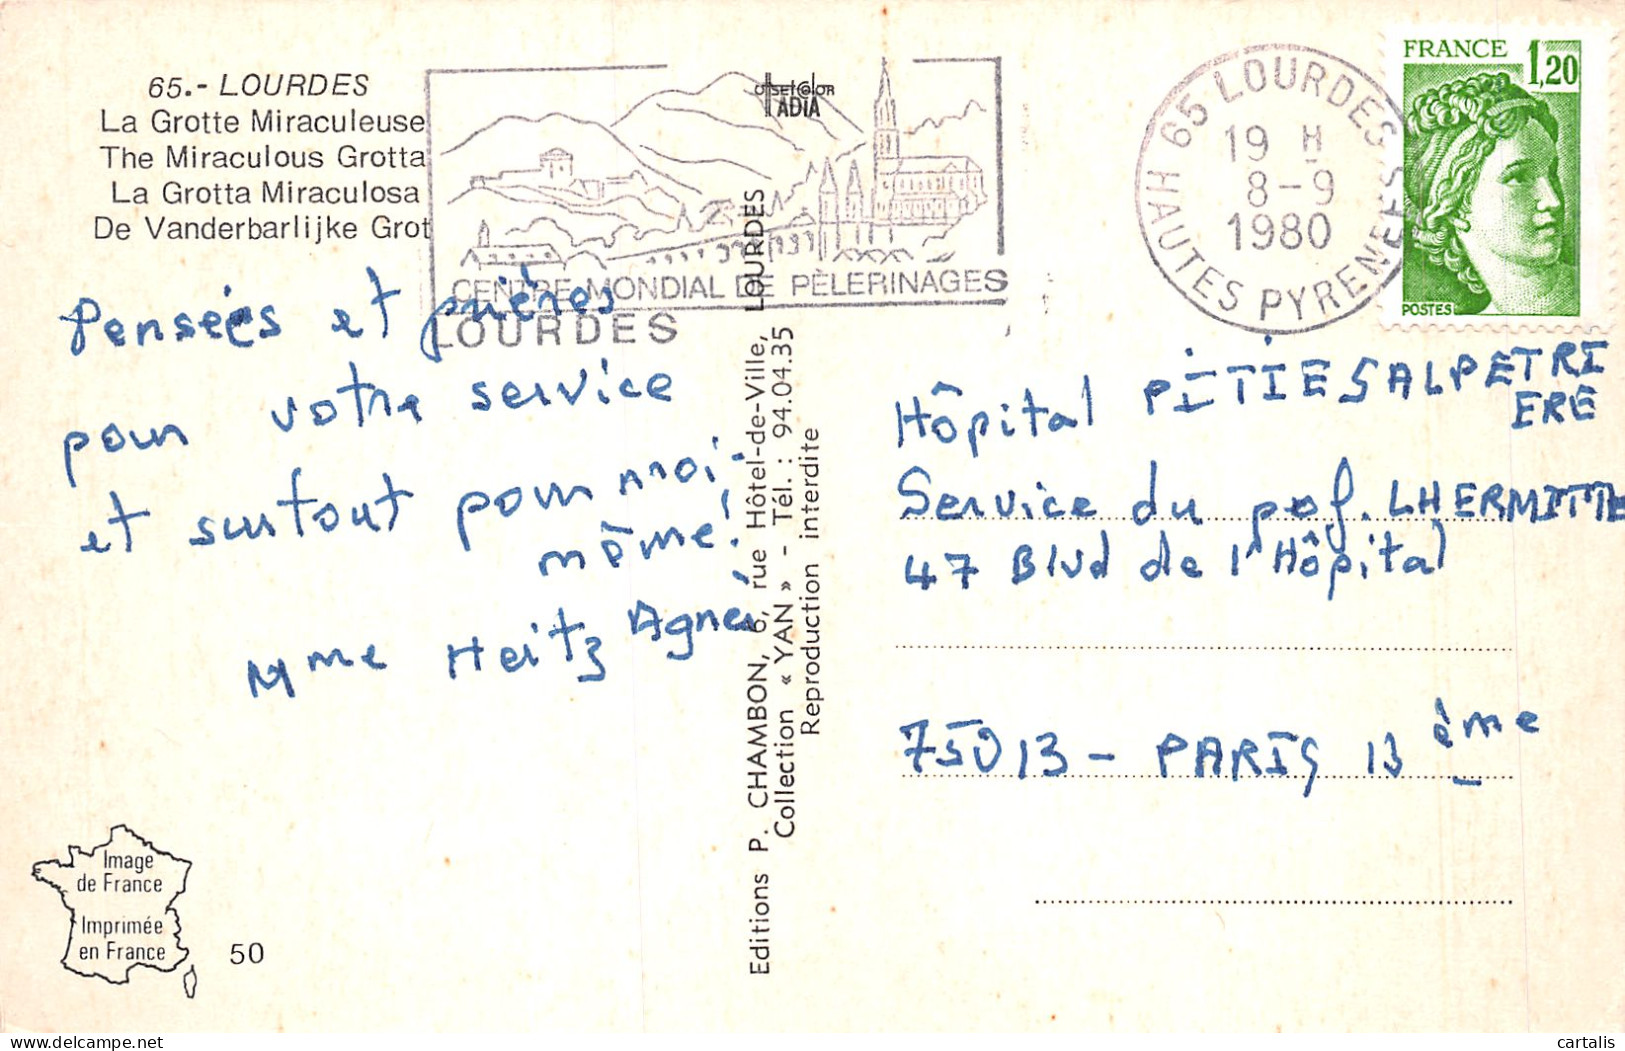 65.- LOURDES
La Grotte Miraculeuse
The Miraculous Grotta
La Grotta Miraculosa
De Vanderbarlijke Grot
offsetcolor
IADIA
CENTRE MONDIAL DE PÈLERINAGES
LOURDES
65 LOURDES
19 H
8-9
1980
HAUTES PYRENEES
FRANCE 1,20
POSTES
Pensées et prières
pour votre service
et surtout pour moi-
même!
Mme Heitz Agnès
Editions P. CHAMBON, 6, rue Hôtel-de-Ville, LOURDES
Collection « YAN » - Tél. : 94.04.35
Reproduction interdite
Hôpital PITIE SALPETRI
ERE
Service du prof. LHERMITTE
47 Blvd de l'Hôpital
75013 - PARIS 13 ème
Image
de France
Imprimée
en France
50
cartalis